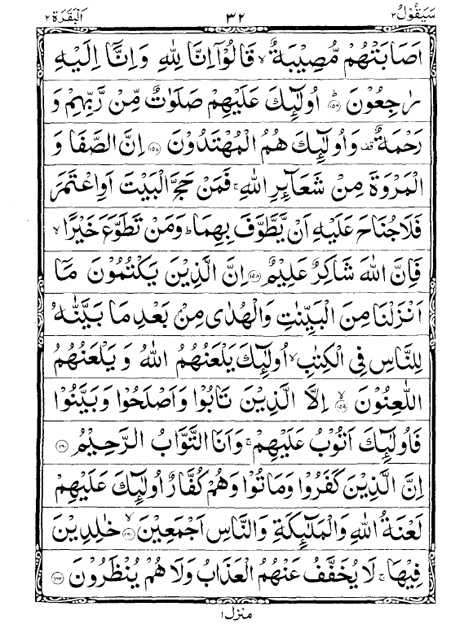 سَيَقُوْلُ ٢ ٣٢ اَلْبَقَرَة ٢
اَصَابَتْهُمْ مُّصِيْبَةٌ ۙ قَالُوْٓا اِنَّا لِلّٰهِ وَاِنَّآ اِلَيْهِ
رٰجِعُوْنَ ؕ ﴿١٥٦﴾ اُولٰٓئِكَ عَلَيْهِمْ صَلَوٰتٌ مِّنْ رَّبِّهِمْ وَ
رَحْمَةٌ ۫ وَاُولٰٓئِكَ هُمُ الْمُهْتَدُوْنَ ﴿١٥٧﴾ اِنَّ الصَّفَا وَ
الْمَرْوَةَ مِنْ شَعَآئِرِ اللّٰهِ ۚ فَمَنْ حَجَّ الْبَيْتَ اَوِاعْتَمَرَ
فَلَاجُنَاحَ عَلَيْهِ اَنْ يَّطَّوَّفَ بِهِمَا ؕ وَمَنْ تَطَوَّعَ خَيْرًا ۙ
فَاِنَّ اللّٰهَ شَاكِرٌ عَلِيْمٌ ﴿١٥٨﴾ اِنَّ الَّذِيْنَ يَكْتُمُوْنَ مَآ
اَنْزَلْنَا مِنَ الْبَيِّنٰتِ وَالْهُدٰى مِنْۢ بَعْدِ مَا بَيَّنّٰهُ
لِلنَّاسِ فِى الْكِتٰبِ ۙ اُولٰٓئِكَ يَلْعَنُهُمُ اللّٰهُ وَ يَلْعَنُهُمُ
اللّٰعِنُوْنَ ۙ ﴿١٥٩﴾ اِلَّا الَّذِيْنَ تَابُوْا وَاَصْلَحُوْا وَبَيَّنُوْا
فَاُولٰٓئِكَ اَتُوْبُ عَلَيْهِمْ ۚ وَاَنَا التَّوَّابُ الرَّحِيْمُ ﴿١٦٠﴾
اِنَّ الَّذِيْنَ كَفَرُوْا وَمَاتُوْا وَهُمْ كُفَّارٌ اُولٰٓئِكَ عَلَيْهِمْ
لَعْنَةُ اللّٰهِ وَالْمَلٰٓئِكَةِ وَالنَّاسِ اَجْمَعِيْنَ ۙ ﴿١٦١﴾ خٰلِدِيْنَ
فِيْهَا ۚ لَا يُخَفَّفُ عَنْهُمُ الْعَذَابُ وَلَا هُمْ يُنْظَرُوْنَ ﴿١٦٢﴾
منزل ١